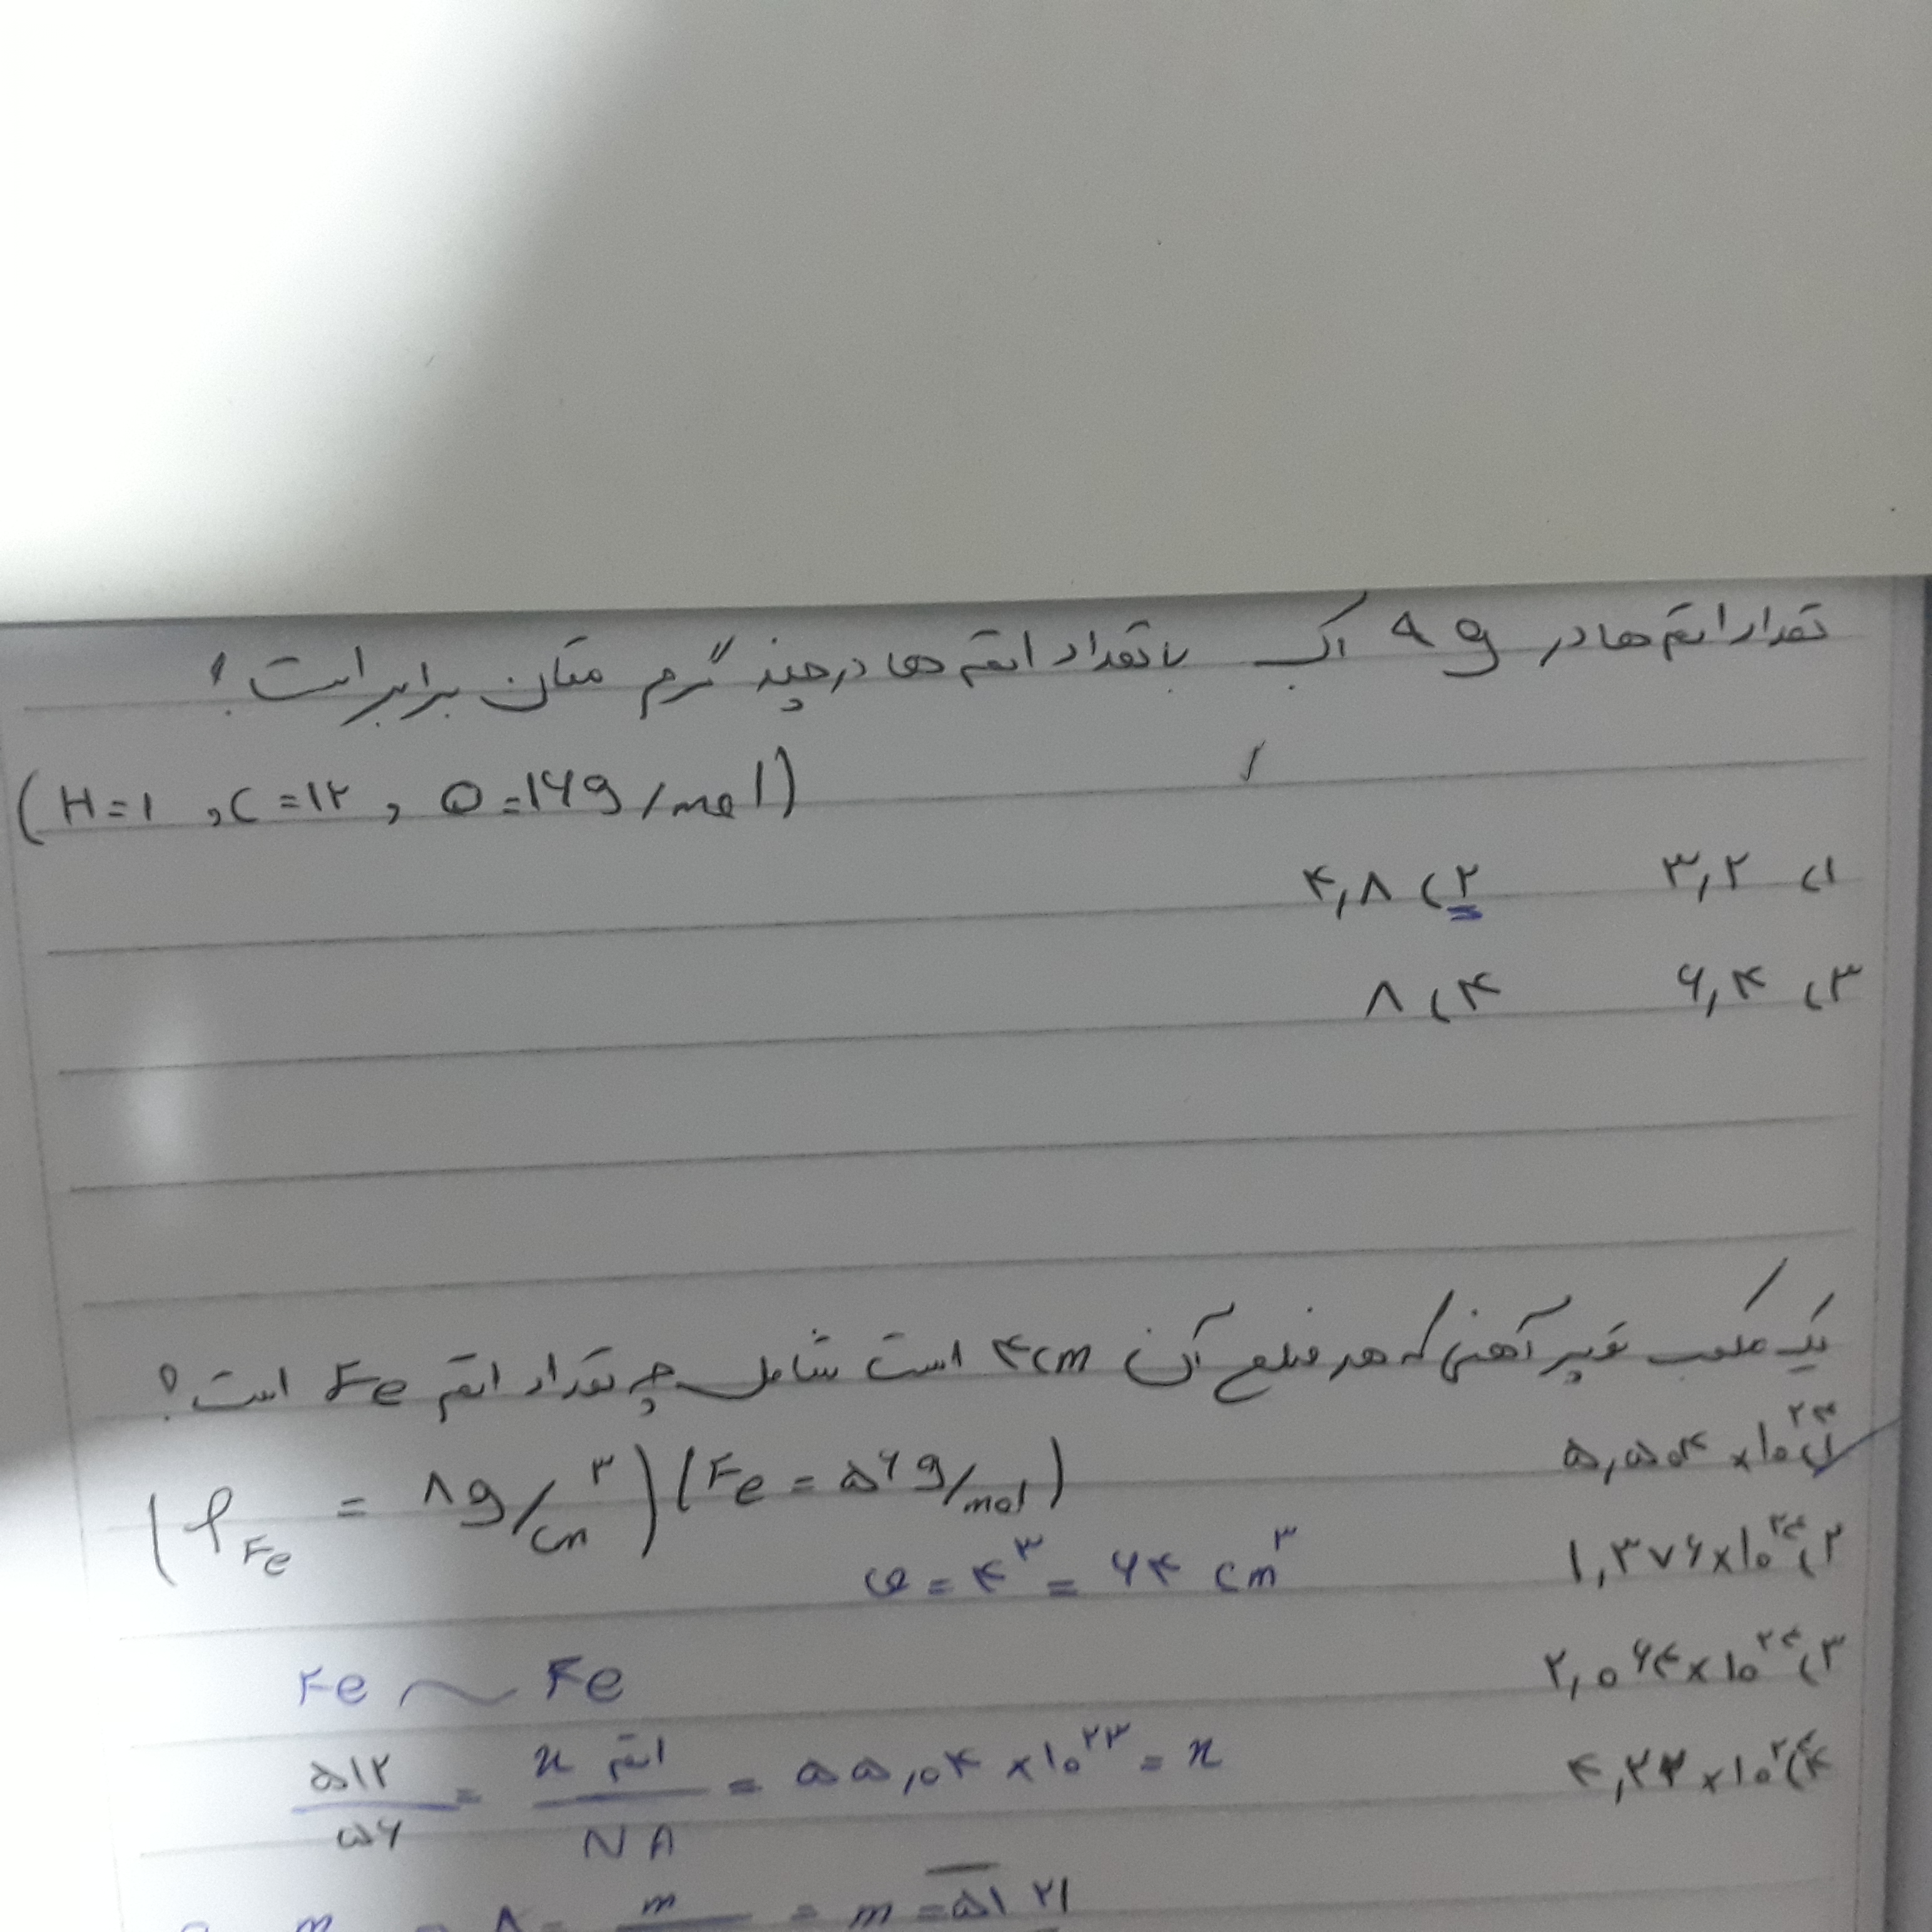 تعداد اتم ها در 9g آب با تعداد اتم ها در چند گرم متان برابر است؟
(H=۱ , C=۱۲ , O=۱۶g/mol)
۱) ۳,۲ ۲) ۴,۸
۳) ۶,۴ ۴) ۸
یک مکعب توپر آهنی که هر ضلع آن ۴cm است شامل چه تعداد اتم Fe است؟
۱) ۵,۵۰۴ × ۱۰^۲۴
(ρFe = ۸g/cm^۳) (Fe = ۵۶g/mol)
۲) ۱,۳۷۶×۱۰^۲۴
v = ۴^۳ = ۶۴ cm^۳
۳) ۲,۰۶۴×۱۰^۲۴
Fe ~ Fe
۴) ۴,۲۳×۱۰^۲۴
۵۱۲/۵۶ = x اتم/NA = ۵۵,۰۴ × ۱۰^۲۳ = x
m = ۵۱۲